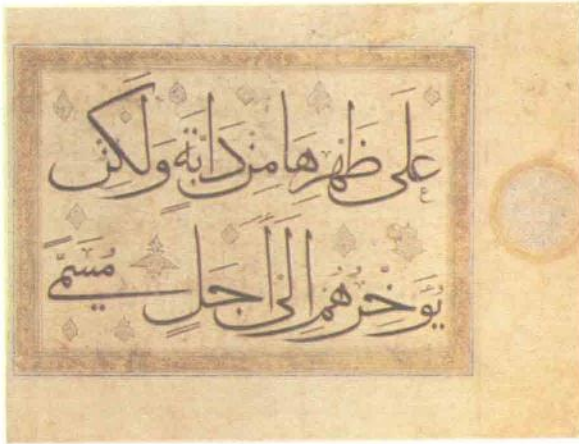 عَلَى ظَهْرِهَا مِنْ دَابَّةٍ وَلَكِنْ
يُؤَخِّرُهُمْ إِلَى أَجَلٍ مُسَمًّى